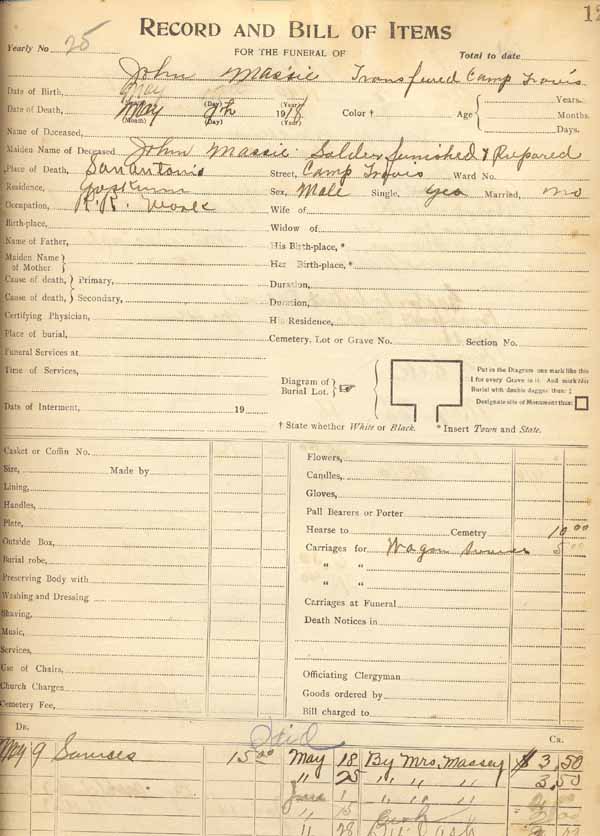 12
RECORD AND BILL OF ITEMS
Yearly No 25 FOR THE FUNERAL OF Total to date
John Massie Transfured Camp Travis
Date of Birth, May
(Month) (Day) (Year) Years.
Date of Death, May 8th 1918 Color † Age Months.
(Month) (Day) (Year) Days.
Name of Deceased,
Maiden Name of Deceased John Massie. Solder furnished & Prepared
Place of Death, San antonio Street, Camp Travis Ward No.
Residence, Sex, Male Single, Yea Married, no
Occupation, R.R. Work Wife of
Birth-place, Widow of
Name of Father, His Birth-place, *
Maiden Name of Mother Her Birth-place, *
Cause of death, Primary, Duration,
Cause of death, Secondary, Duration,
Certifying Physician, His Residence,
Place of burial, Cemetery, Lot or Grave No. Section No.
Funeral Services at
Time of Services,
Diagram of Burial Lot.
Put in the Diagram one mark like this
I for every Grave in it. And mark this
Burial with double dagger thus: ‡
Designate site of Monument thus:
Date of Interment, 19
† State whether White or Black. * Insert Town and State.
Casket or Coffin No. Flowers,
Size, Made by Candles,
Lining, Gloves,
Handles, Pall Bearers or Porter
Plate, Hearse to Cemetry 10.00
Outside Box, Carriages for Wagon 5.00
Burial robe, " "
Preserving Body with " "
Washing and Dressing Carriages at Funeral
Shaving, Death Notices in
Music,
Services,
Use of Chairs, Officiating Clergyman
Church Charges Goods ordered by
Cemetery Fee, Bill charged to
DR. Paid CR.
May 9 Services 15.00 May 18 By Mrs. Massey $ 3.50
" 25 " " " 3.50
June 1 " " "
" 15 Cash
" 28 By Cash